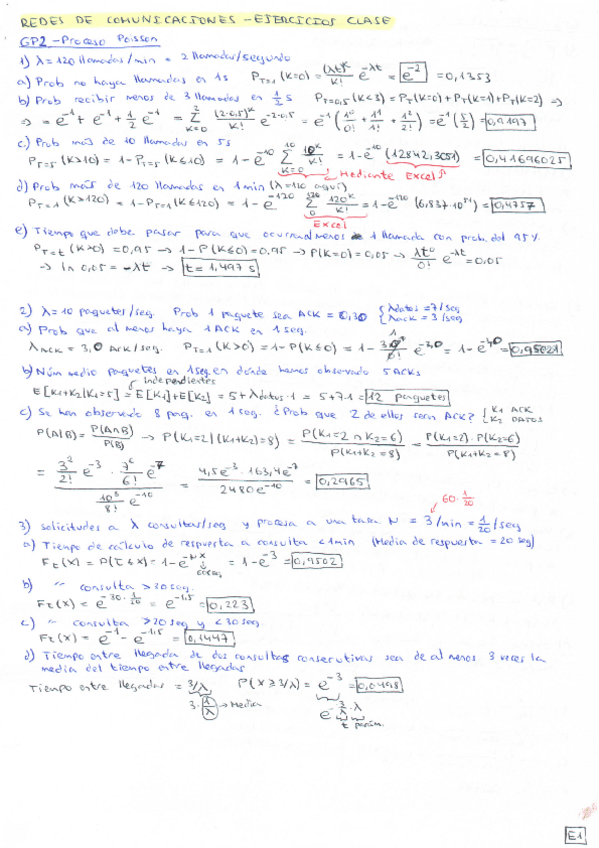 REDES DE COMUNICACIONES - EJERCICIOS CLASE
GP2 - Proceso Poisson
1) λ = 120 llamadas/min = 2 llamadas/segundo
a) Prob no haya llamadas en 1s P_{T=1}(K=0) = (λt)^K/K! e^{-λt} = e^{-2} = 0,1353
b) Prob recibir menos de 3 llamadas en 1/2 s P_{T=0,5}(K<3) = P_T(K=0) + P_T(K=1) + P_T(K=2) ⇒
⇒ = e^{-1} + e^{-1} + 1/2 e^{-1} = Σ_{K=0}^{2} (2·0,5)^K/K! e^{-2·0,5} = e^{-1}(1^0/0! + 1^1/1! + 1^2/2!) = e^{-1}(5/2) = 0,9197
c) Prob más de 10 llamadas en 5s
P_{T=5}(K>10) = 1 - P_{T=5}(K≤10) = 1 - e^{-10} Σ_{K=0}^{10} 10^K/K! = 1 - e^{-10}(12842,3051) = 0,41696025
Mediante Excel
d) Prob más de 120 llamadas en 1 min (λ=120 aquí)
P_{T=1}(K>120) = 1 - P_{T=1}(K≤120) = 1 - e^{-120} Σ_{0}^{120} 120^K/K! = 1 - e^{-120}(6,837·10^{51}) = 0,4757
EXCEL
e) Tiempo que debe pasar para que ocurra al menos 1 llamada con prob. del 95%
P_{T=t}(K>0) = 0,95 → 1 - P(K≤0) = 0,95 → P(K=0) = 0,05 → λt^0/0! e^{-λt} = 0,05
→ ln 0,05 = -λt → t = 1,497 s
2) λ = 10 paquetes/seg. Prob 1 paquete sea ACK = 0,30 { λdatos = 7/seg λACK = 3/seg
a) Prob que al menos haya 1 ACK en 1 seg.
λ_ACK = 3,0 ACK/seg. P_{T=1}(K>0) = 1 - P(K≤0) = 1 - 3,0^0/0! e^{-3,0} = 1 - e^{-3,0} = 0,95021
b) Núm medio paquetes en 1 seg en donde hemos observado 5 ACKs
independientes
E[K1+K2|K1=5] = E[K1] + E[K2] = 5 + λdatos·1 = 5 + 7·1 = 12 paquetes
c) Se han observado 8 paq. en 1 seg. ¿Prob que 2 de ellos sean ACK? { K1 ACK K2 DATOS
P(A|B) = P(A∩B)/P(B) → P(K1=2|(K1+K2)=8) = P(K1=2 ∩ K2=6)/P(K1+K2=8) = P(K1=2)·P(K2=6)/P(K1+K2=8)
= (3^2/2! e^{-3} · 7^6/6! e^{-7})/(10^8/8! e^{-10}) = 4,5e^{-3} · 163,4e^{-7}/2480e^{-10} = 0,2965
60·1/20
3) solicitudes a λ consultas/seg y procesa a una tasa N = 3/min = 1/20 /seg
a) Tiempo de cálculo de respuesta a consulta <1min (Media de respuesta = 20 seg)
F_t(x) = P(t≤x) = 1 - e^{-Nx} = 1 - e^{-3} = 0,9502
b) " consulta > 30 seg.
F_t(x) = e^{-30·1/20} = e^{-1,5} = 0,223
c) " consulta > 20 seg y < 30 seg
F_t(x) = e^{-1} - e^{-1,5} = 0,1447
d) Tiempo entre llegada de dos consultas consecutivas sea de al menos 3 veces la
media del tiempo entre llegadas
Tiempo entre llegadas = 3/λ P(X≥3/λ) = e^{-3} = 0,0498
3·1/λ → Media e^{-3/λ·λ}
t parám.
E1